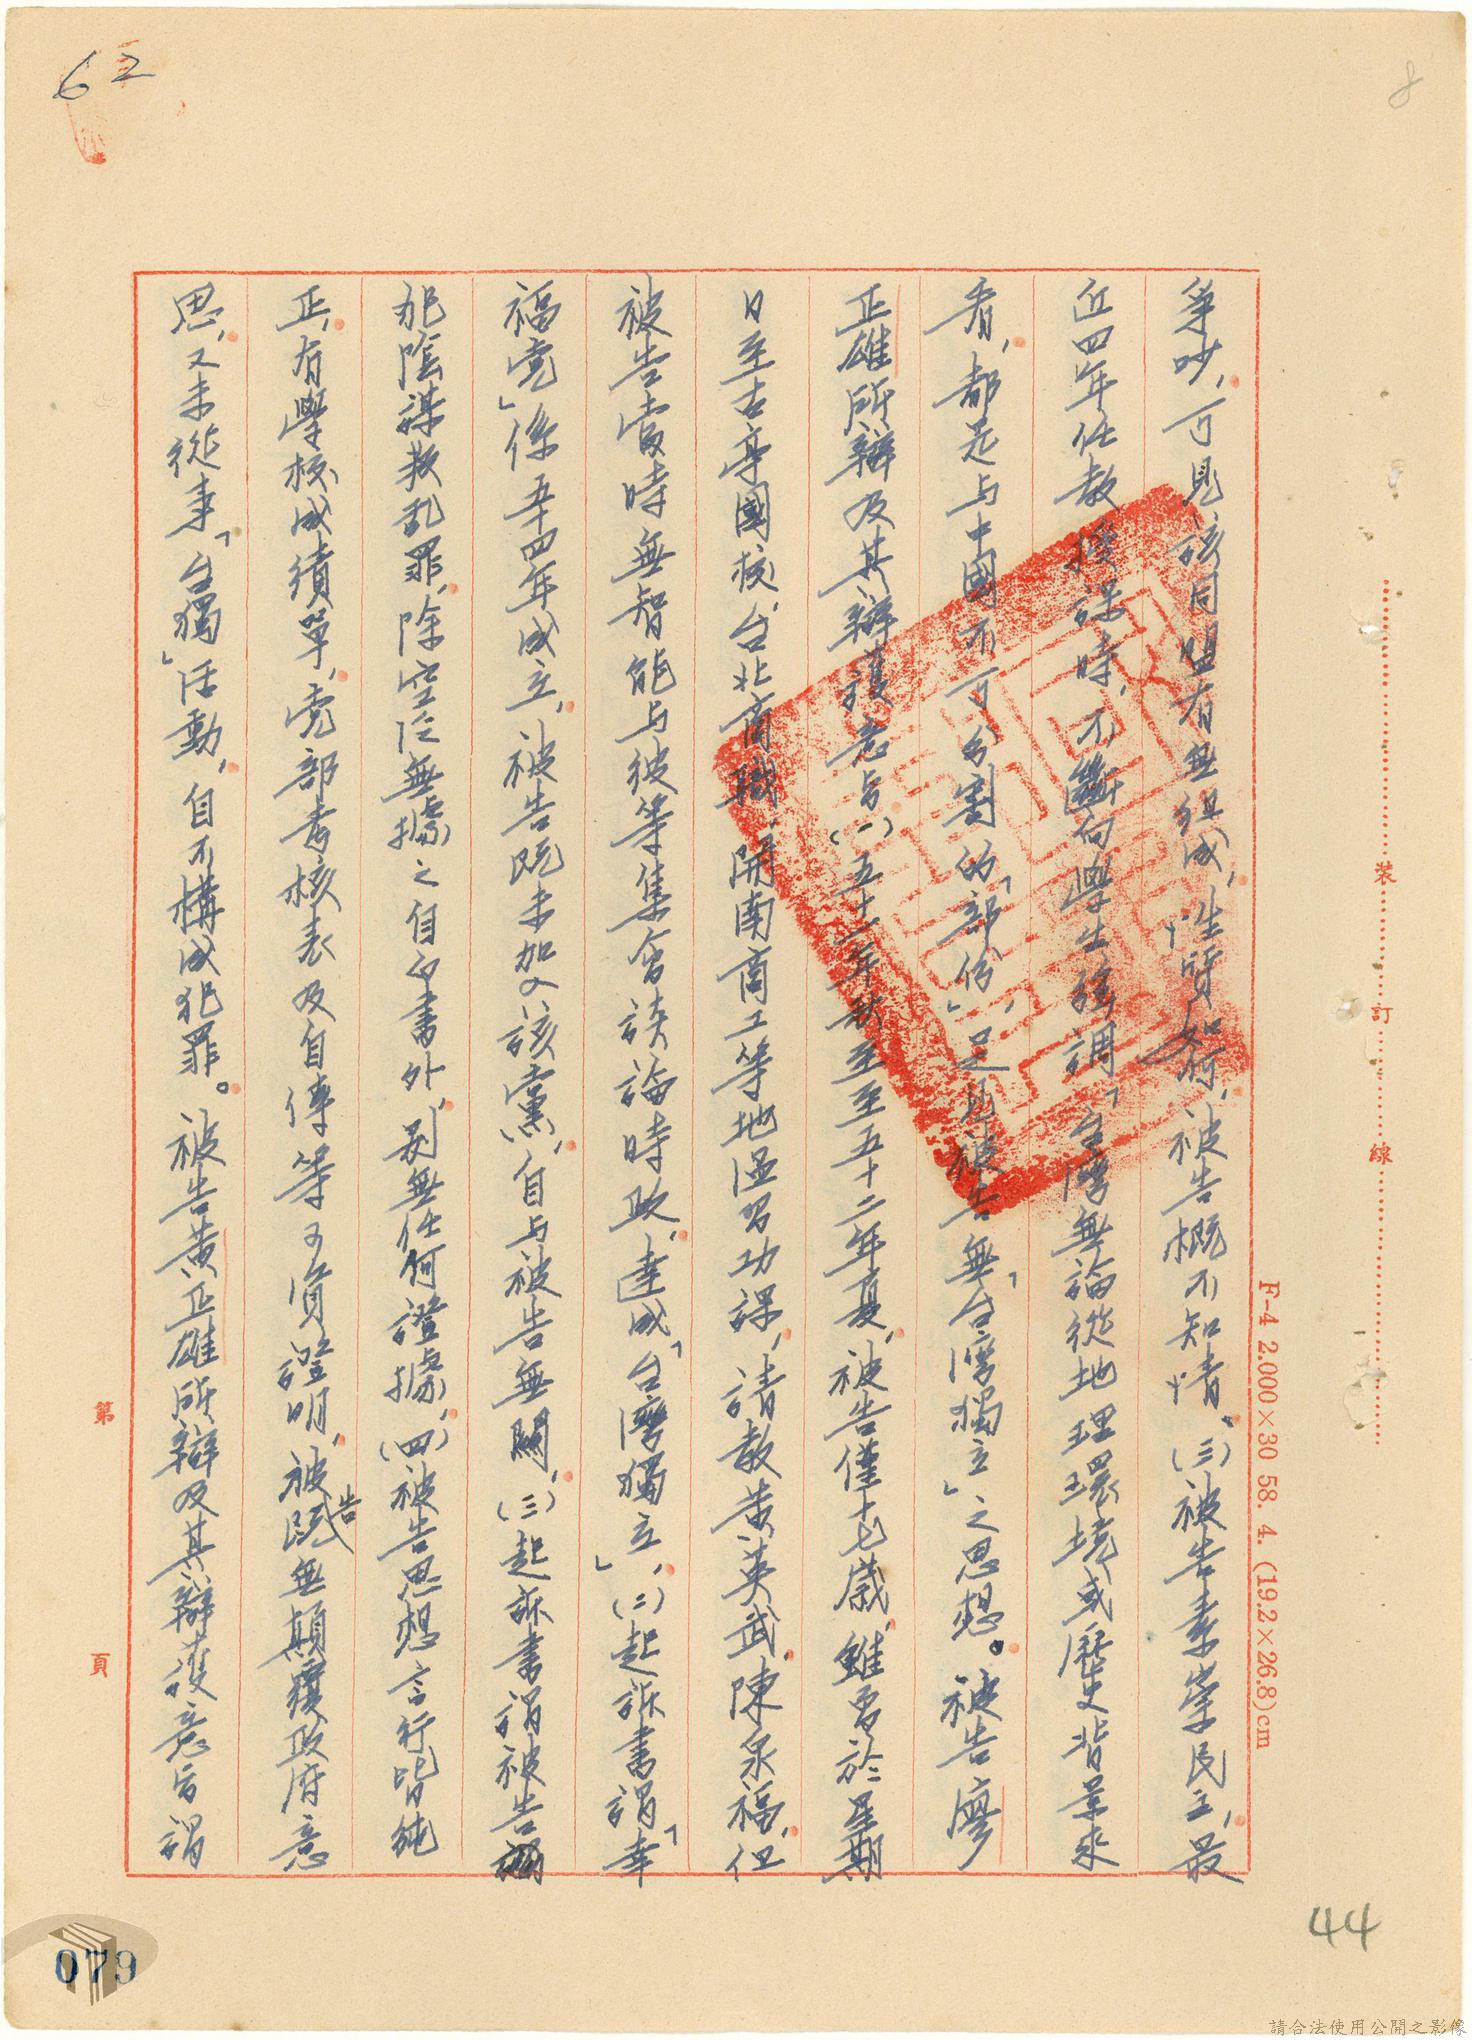 62
8
爭吵，可見該同盟有無組成，性質如何，被告概不知情。(三)被告素崇民主，最
近四年任教授課時，不斷向學生強調「台灣無論從地理環境或歷史背景來
看，都是與中國不可分割的「部份」，足見被告無「台灣獨立」之思想。被告廖
正雄所辯及其辯護意旨(一)五十一年秋至至五十二年夏，被告僅十七歲，雖曾於星期
日至古亭國校、台北商職、開南商工等地溫習功課，請教黃英武、陳泉福，但
被告當時無智能與彼等集會談論時政，達成「台灣獨立」，(二)起訴書謂「幸
福党」係五十四年成立，被告既未加入該黨，自與被告無關，(三)起訴書謂被告
犯陰謀叛乱罪，除空泛無據之自白書外，別無任何證據，(四)被告思想言行皆純
正，有學校成績單，党部考核表及自傳等可資證明，被告既無顛覆政府意
思，又未從事「台獨」活動，自不構成犯罪。被告黃正雄所辯及其辯護意旨謂
裝
訂
線
F-4 2.000×30 58. 4. (19.2×26.8)cm
第
頁
44
079
請合法使用公開之影像